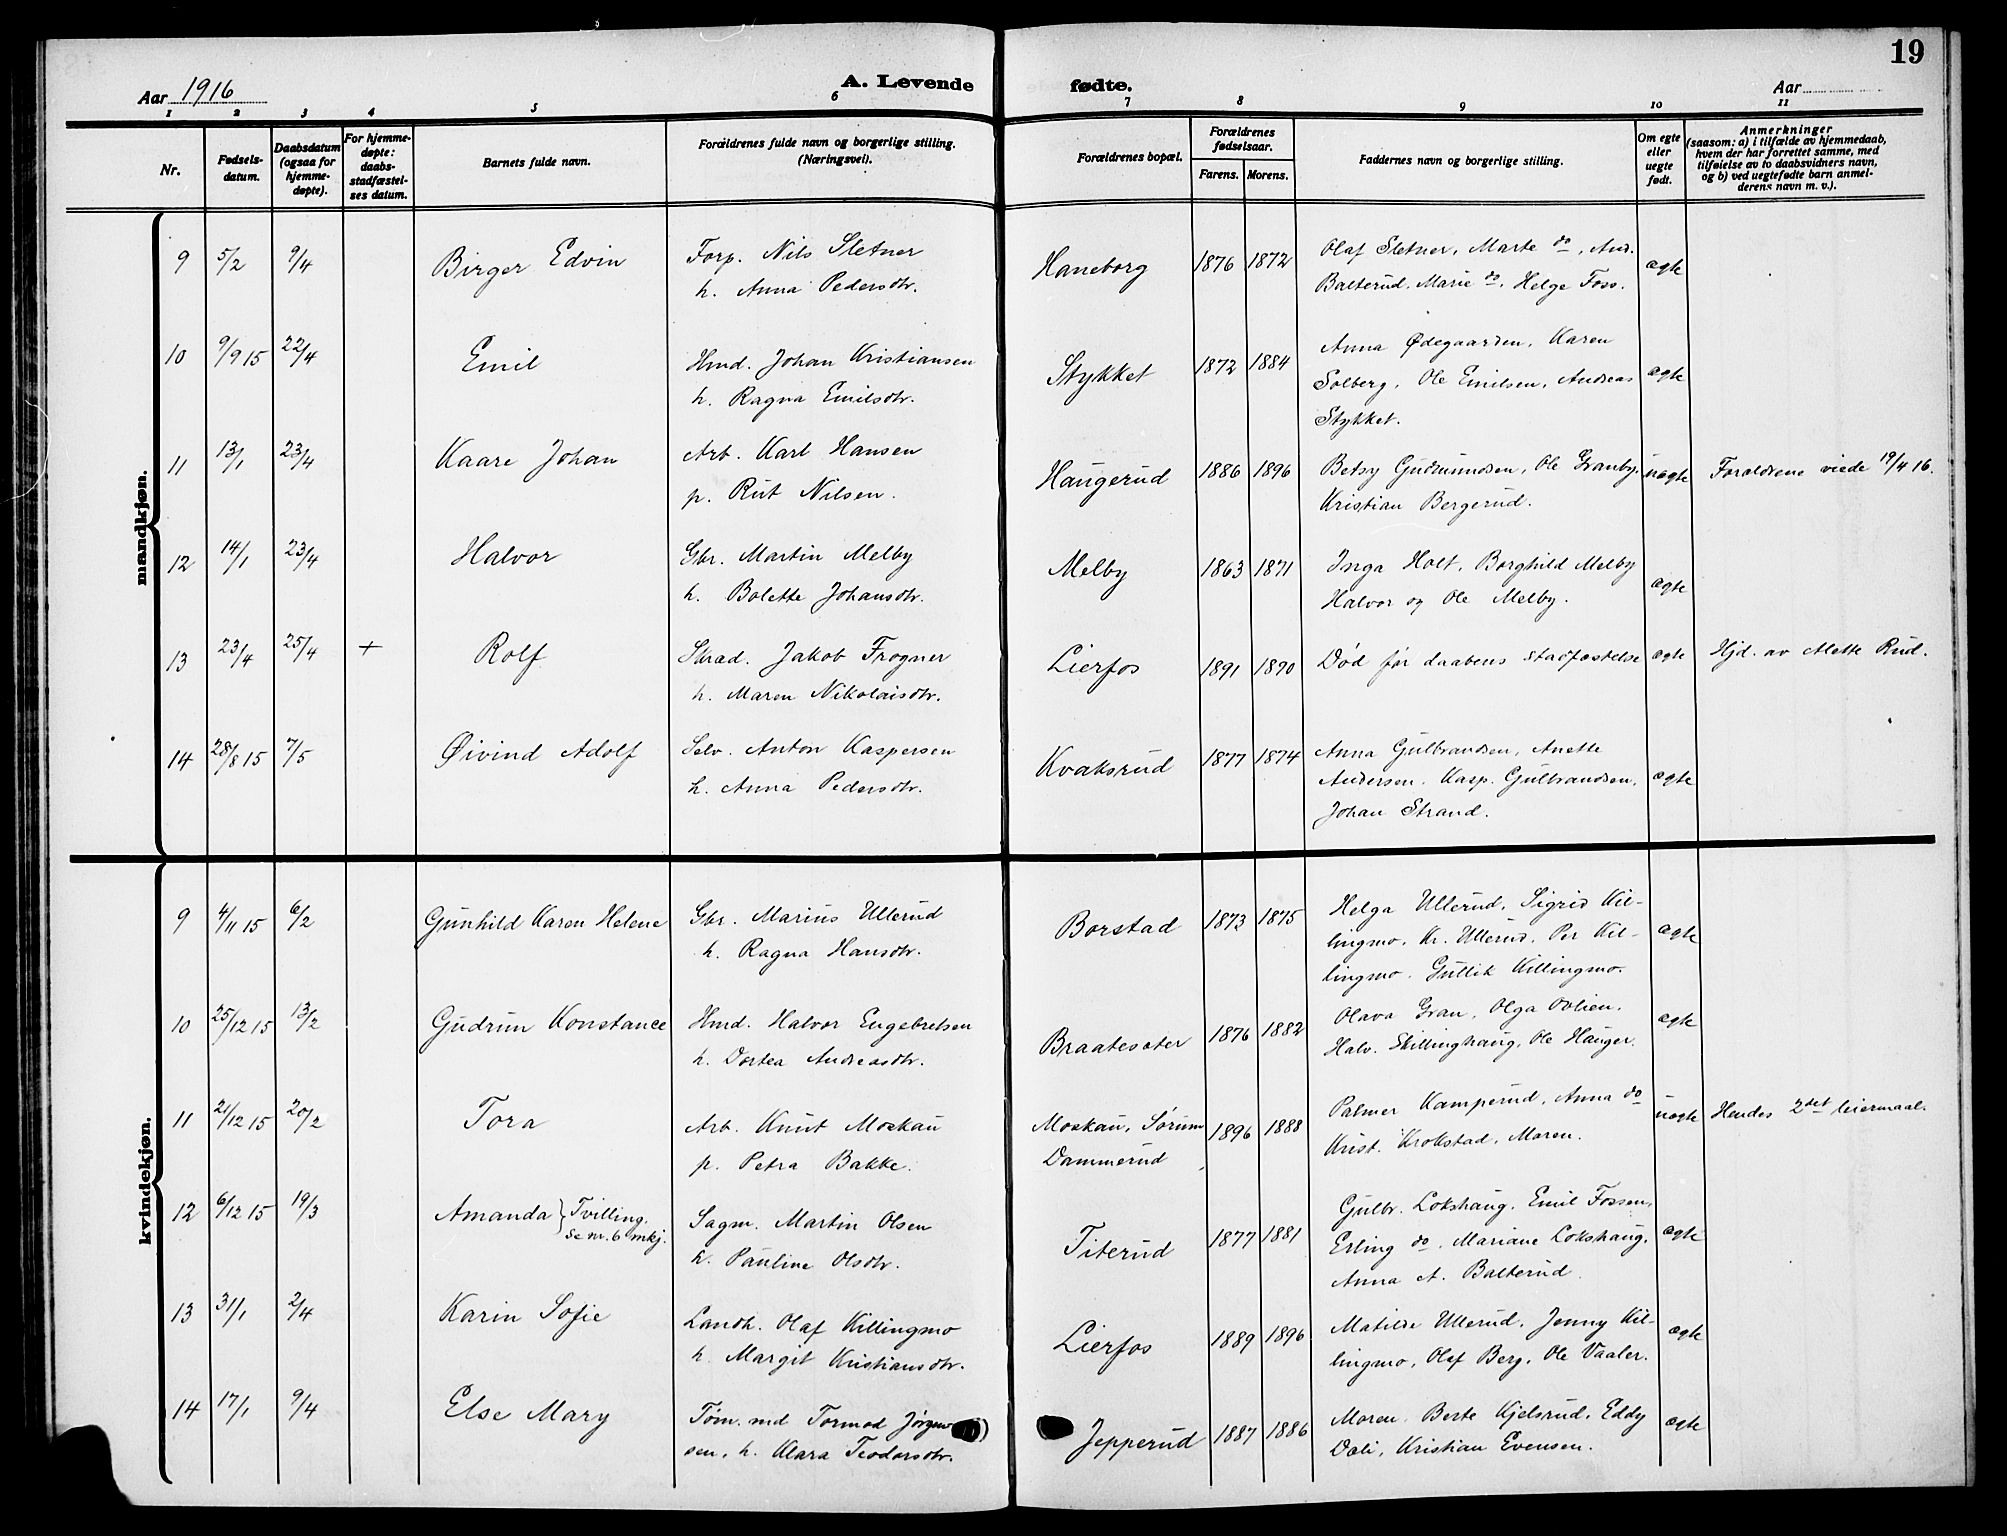 19
Aar 1916
A. Levende fødte.
Aar
1 2 3 4 5 6 7 8 9 10 11
Nr.
Fødsels-
datum.
Daabsdatum
(ogsaa for
hjemme-
døpte).
For hjemme-
døpte:
daabs-
stadfæstel-
ses datum.
Barnets fulde navn.
Forældrenes fulde navn og borgerlige stilling.
(Næringsvei).
Forældrenes bopæl.
Forældrenes
fødselsaar.
Farens. Morens.
Faddernes navn og borgerlige stilling.
Om egte
eller
uegte
født.
Anmerkninger
(saasom: a) i tilfælde av hjemmedaab,
hvem der har forrettet samme, med
tilføielse av to daabsvidners navn,
og b) ved uegtefødte barn anmel-
derens navn m. v.).
mandkjøn.
9 5/2 9/4 Birger Edvin
Forp. Nils Sletner
h. Anna Pedersdtr.
Haneborg 1876 1872
Olaf Sletner, Marte do, And.
Balterud. Marie do. Helge Foss.
ægte
10 9/9 15 22/4 Emil
Hmd. Johan Kristiansen
h. Ragna Emilsdtr.
Stykket 1872 1884
Anna Ødegaarden, Karen
Solberg, Ole Emilsen, Andreas
Stykket.
ægte
11 13/1 23/4 Kaare Johan
Arb. Karl Hansen
p. Rut Nilsen.
Haugerud 1886 1896
Betsy Gudmundsen, Ole Granby.
Kristian Bergerud.
uægte Forældrene viede 19/4 16.
12 14/1 23/4 Halvor
Gbr. Martin Melby
h. Bolette Johansdtr.
Melby 1863 1871
Inga Holt, Borghild Melby
Halvor og Ole Melby.
ægte
13 23/4 25/4 + Rolf
Skræd. Jakob Frogner
h. Maren Nikolaisdtr.
Lierfos 1891 1890
Død før daabens stadfæstelse
ægte Hjd. av Mette Rud.
14 28/8 15 7/5 Øivind Adolf
Selv. Anton Kaspersen
h. Anna Pedersdtr.
Kvaksrud 1877 1874
Anna Gulbrandsen, Anette
Andersen. Kasp. Gulbrandsen.
Johan Strand.
ægte
kvindekjøn.
9 4/11 15 6/2 Gunhild Karen Helene
Gbr. Marius Ullerud
h. Ragna Hansdtr.
Borstad 1873 1875
Helga Ullerud, Sigrid Kil-
lingmo. Kr. Ullerud. Per Kil-
lingmo. Gullik Killingmo.
ægte
10 25/12 15 13/2 Gudrun Konstance
Hmd. Halvor Engebretsen
h. Dortea Andreasdtr.
Braatesæter 1876 1882
Olava Gran, Olga Ovlien.
Halv. Skillinghaug, Ole Hauger.
ægte
11 21/12 15 20/2 Tora
Arb. Knut Moskau
p. Petra Bakke.
Moskau, Sørum
Dammerud 1896 1888
Palmer Kamperud, Anna do
Krist. Krokstad, Moren.
uægte Hendes 2det leiermaal.
12 6/12 15 19/3 Amanda } Tvilling.
Se nr. 6 mkj.
Sagm. Martin Olsen
h. Pauline Olsdtr.
Titerud 1877 1881
Gulbr. Lokshaug. Emil Fossen,
Erling do. Mariane Lokshaug.
Anna A. Balterud.
ægte
13 31/1 2/4 Karin Sofie
Landh. Olaf Killingmo
h. Margit Kristiansdtr.
Lierfos 1889 1896
Matilde Ullerud, Jenny Kil-
lingmo, Olaf Berg, Ole Vaaler.
ægte
14 17/1 9/4 Else Mary
Tøm. md Tormod Jørgen-
sen, h. Klara Teodorsdtr.
Jepperud 1887 1886
Moren. Berte Kjelsrud. Eddy
Dæli, Kristian Evensen.
ægte